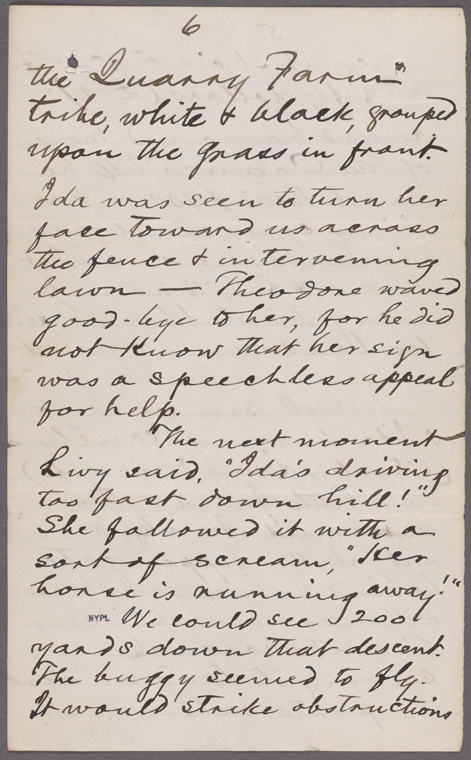 6
the "Quarry Farm"
tribe, white & black, grouped
upon the grass in front.
Ida was seen to turn her
face toward us across
the fence & intervening
lawn — Theodore waved
good-bye to her, for he did
not know that her sign
was a speechless appeal
for help.
The next moment
Livy said, "Ida's driving
too fast down hill!"
She followed it with a
sort of scream, "Her
horse is running away!"
NYPL We could see 200
yards down that descent.
The buggy seemed to fly.
It would strike obstructions